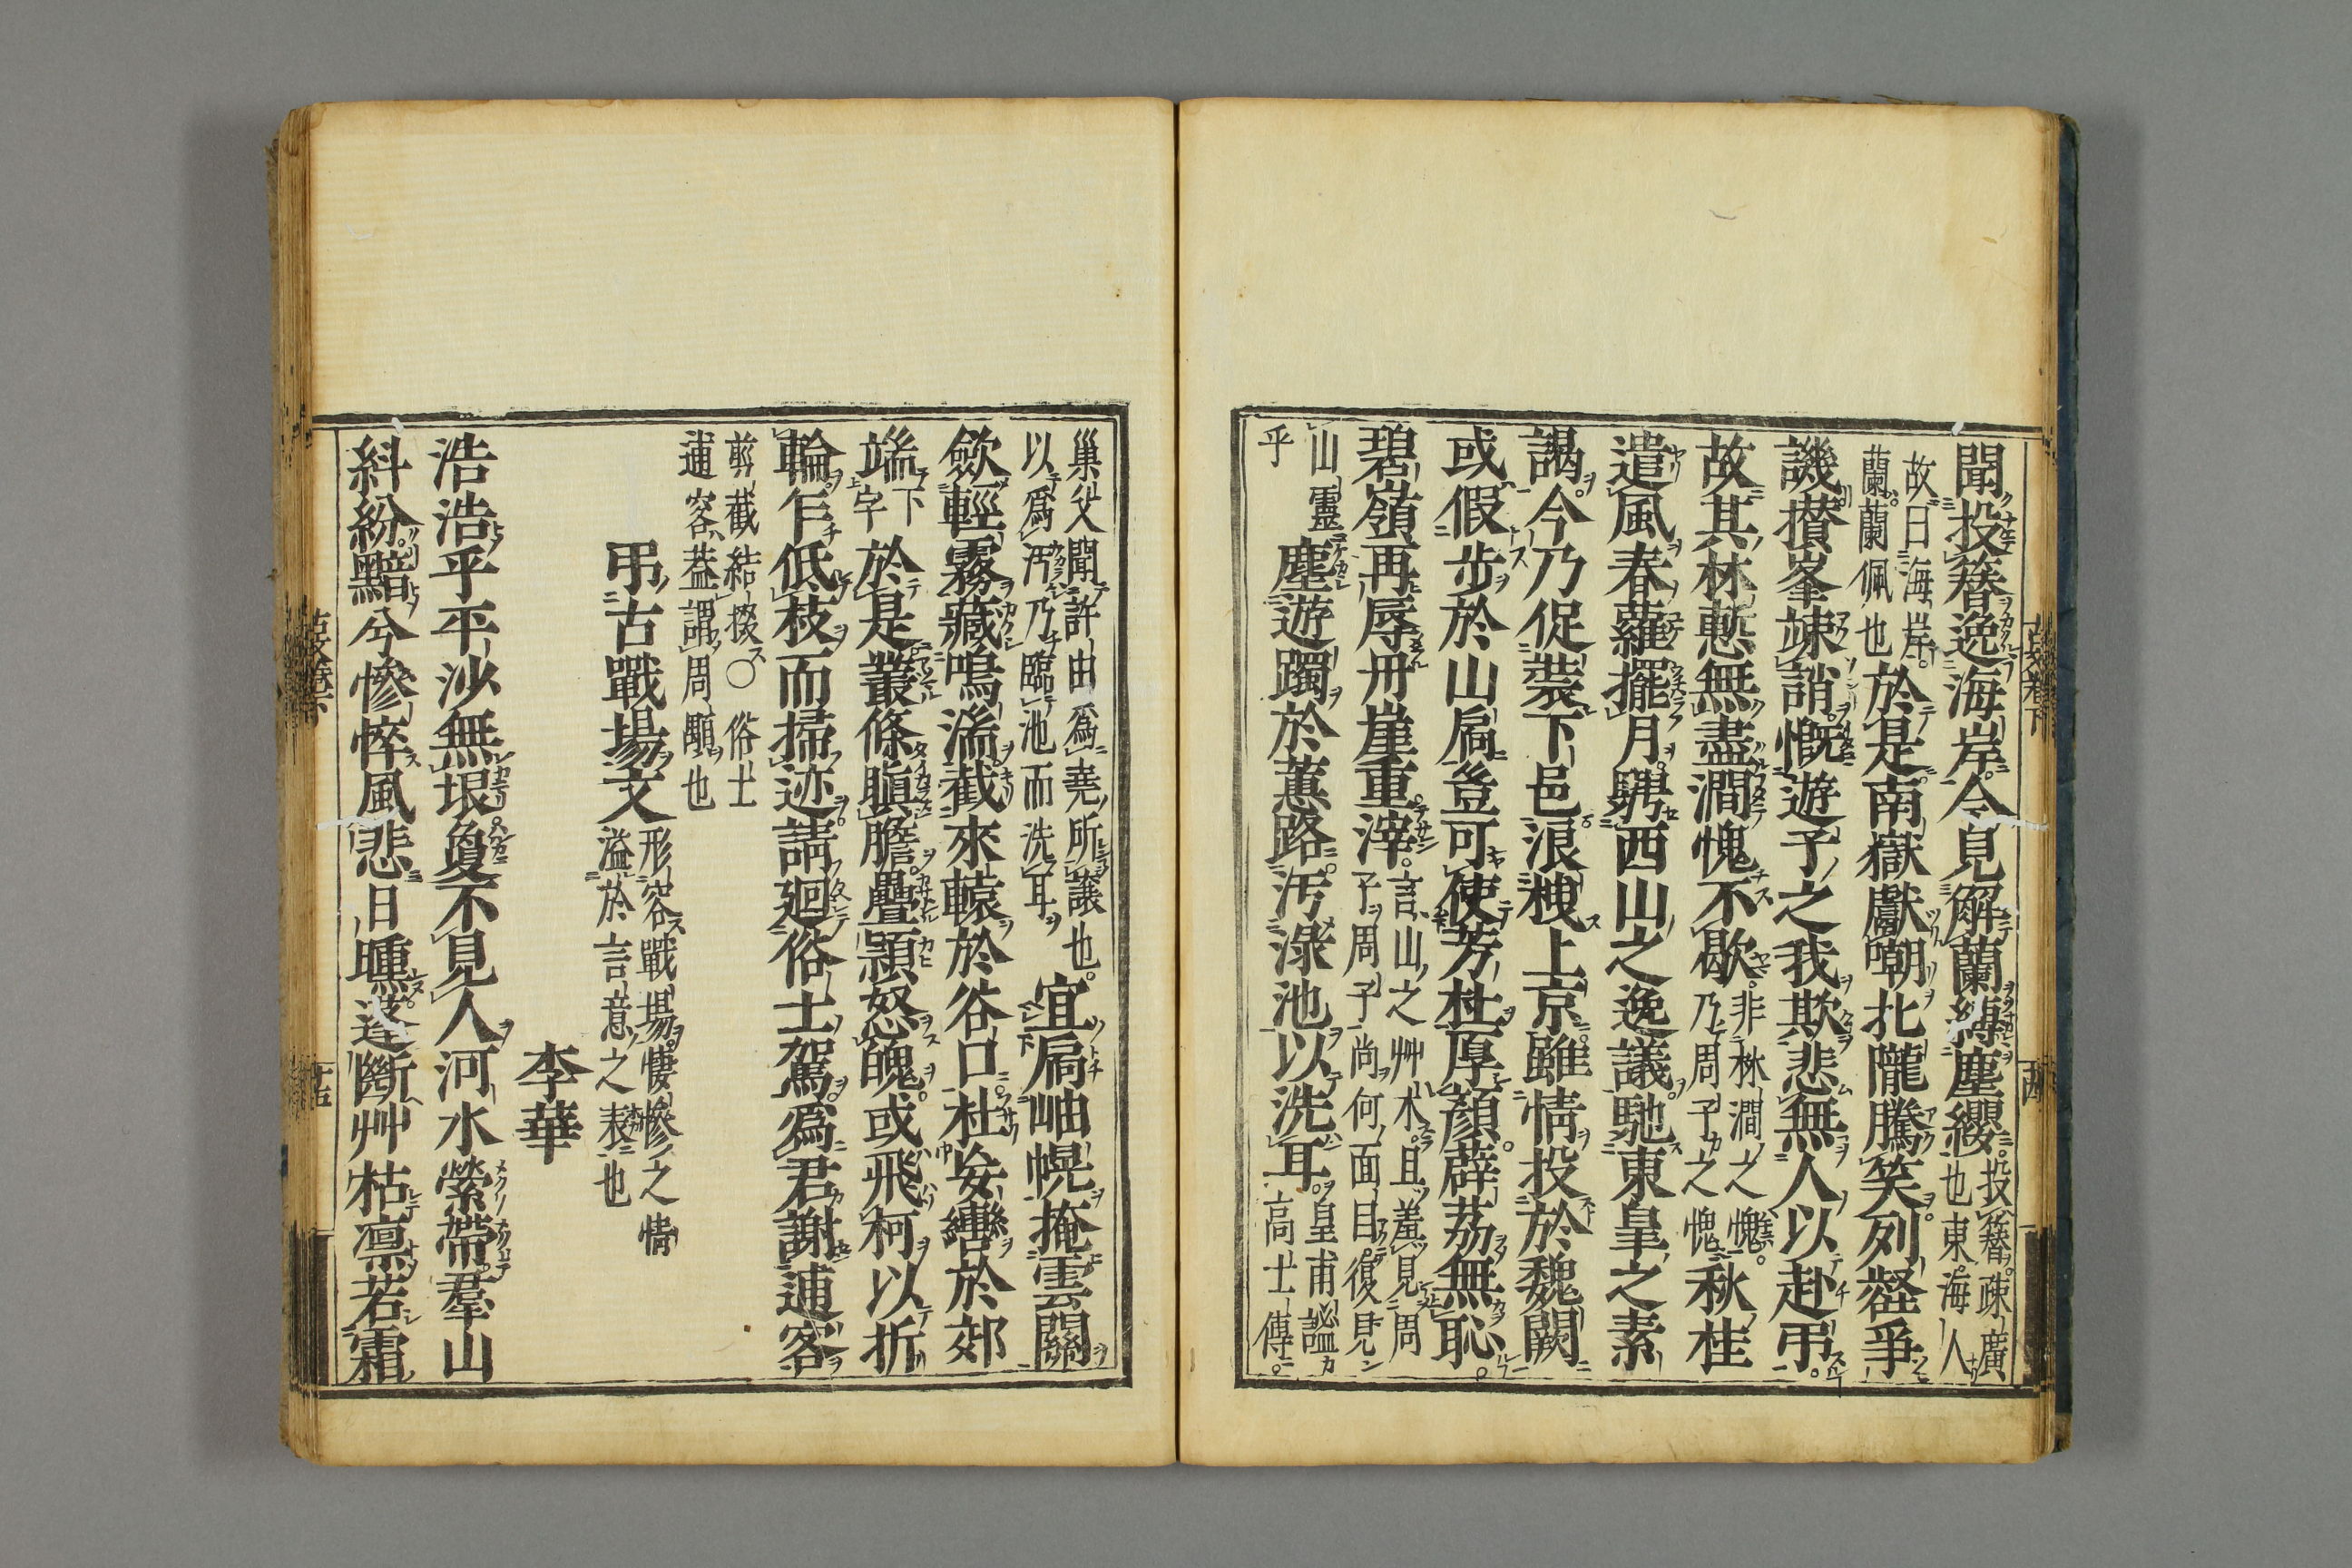 聞投簪逸海岸今見解蘭縛塵纓投簪疎廣也東海人
故曰海岸蘭蘭佩也於是南嶽獻嘲北隴騰笑列壑爭
譏攅峯竦誚慨遊子之我欺悲無人以赴弔
故其林慙無盡澗愧不歇非林澗之愧乃周子之愧秋桂
遣風春蘿擺月騁西山之逸議馳東皐之素
謁今乃促裝下邑浪栧上京雖情投於魏闕
或假步於山扃豈可使芳杜厚顏薜荔無恥
碧嶺再辱丹崖重滓言山之艸木且羞見周子周子尚何面目復見
山靈乎塵遊躅於蕙路汚淥池以洗耳皇甫謐高士傳
古文卷下
巢父聞許由爲堯所讓也以爲汚乃臨池而洗耳宜扃岫幌掩雲關
斂輕霧藏鳴湍截來轅於谷口杜妄轡於郊
端下字於是叢條瞋膽疊穎怒魄或飛柯以折
輪乍低枝而掃迹請廻俗士駕爲君謝逋客
剪截結掇○俗士逋客蓋謂周顒也
弔古戰場文形容戰場悽慘之情溢於言意之表也
李華
浩浩乎平沙無垠敻不見人河水縈帶羣山
糾紛黯兮慘悴風悲日曛蓬斷艸枯凛若霜
古文卷下